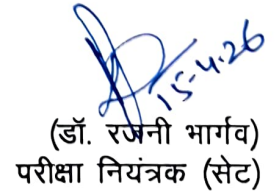 15-4-26
(डॉ. रजनी भार्गव)
परीक्षा नियंत्रक (सेट)